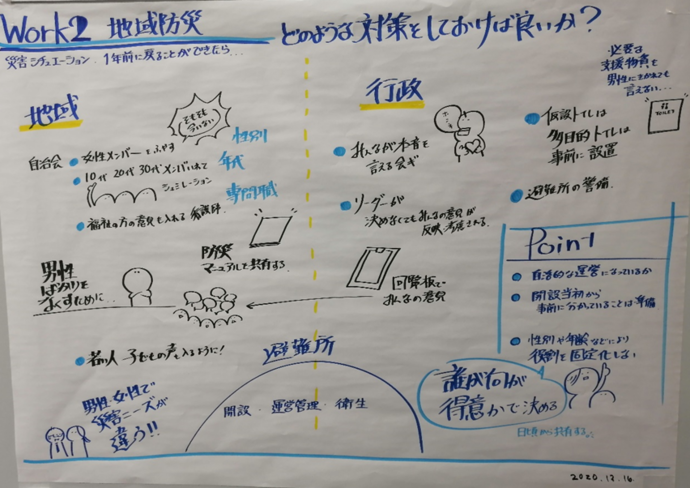 Work2 地域防災 どのような対策をしておけば良いか?
災害シチュエーション. 1年前に戻ることができたら...
地域
そもそも
今いない
自治会
女性メンバーをふやす
10代20代30代メンバー入れて
シュミレーション
性別
年代
専門職
福祉の方の意見も入れる 看護師.
防災
マニュアルで共有する.
男性
ばかりを
なくすために..
若い人 子どもの声も入るように!
男性・女性で
災害ニーズが
違う!!
行政
みんなが本音を
言える会ギ
リーダーが
決めなくてもみんなの意見が
反映.考慮される.
回覧板で
みんなの意見
必要な
支援物資を
男性にきかれても
言えない...
TOILET
仮設トイレは
多目的トイレは
事前に設置
避難所の警備.
Point
自治的な運営になっているか
開設当初から
事前に分かっていることは準備
性別や年齢などにより
役割を固定化しない
避難所
開設・運営管理・衛生
誰が何が
得意かで決める
日頃から共有する..
2020.12.16